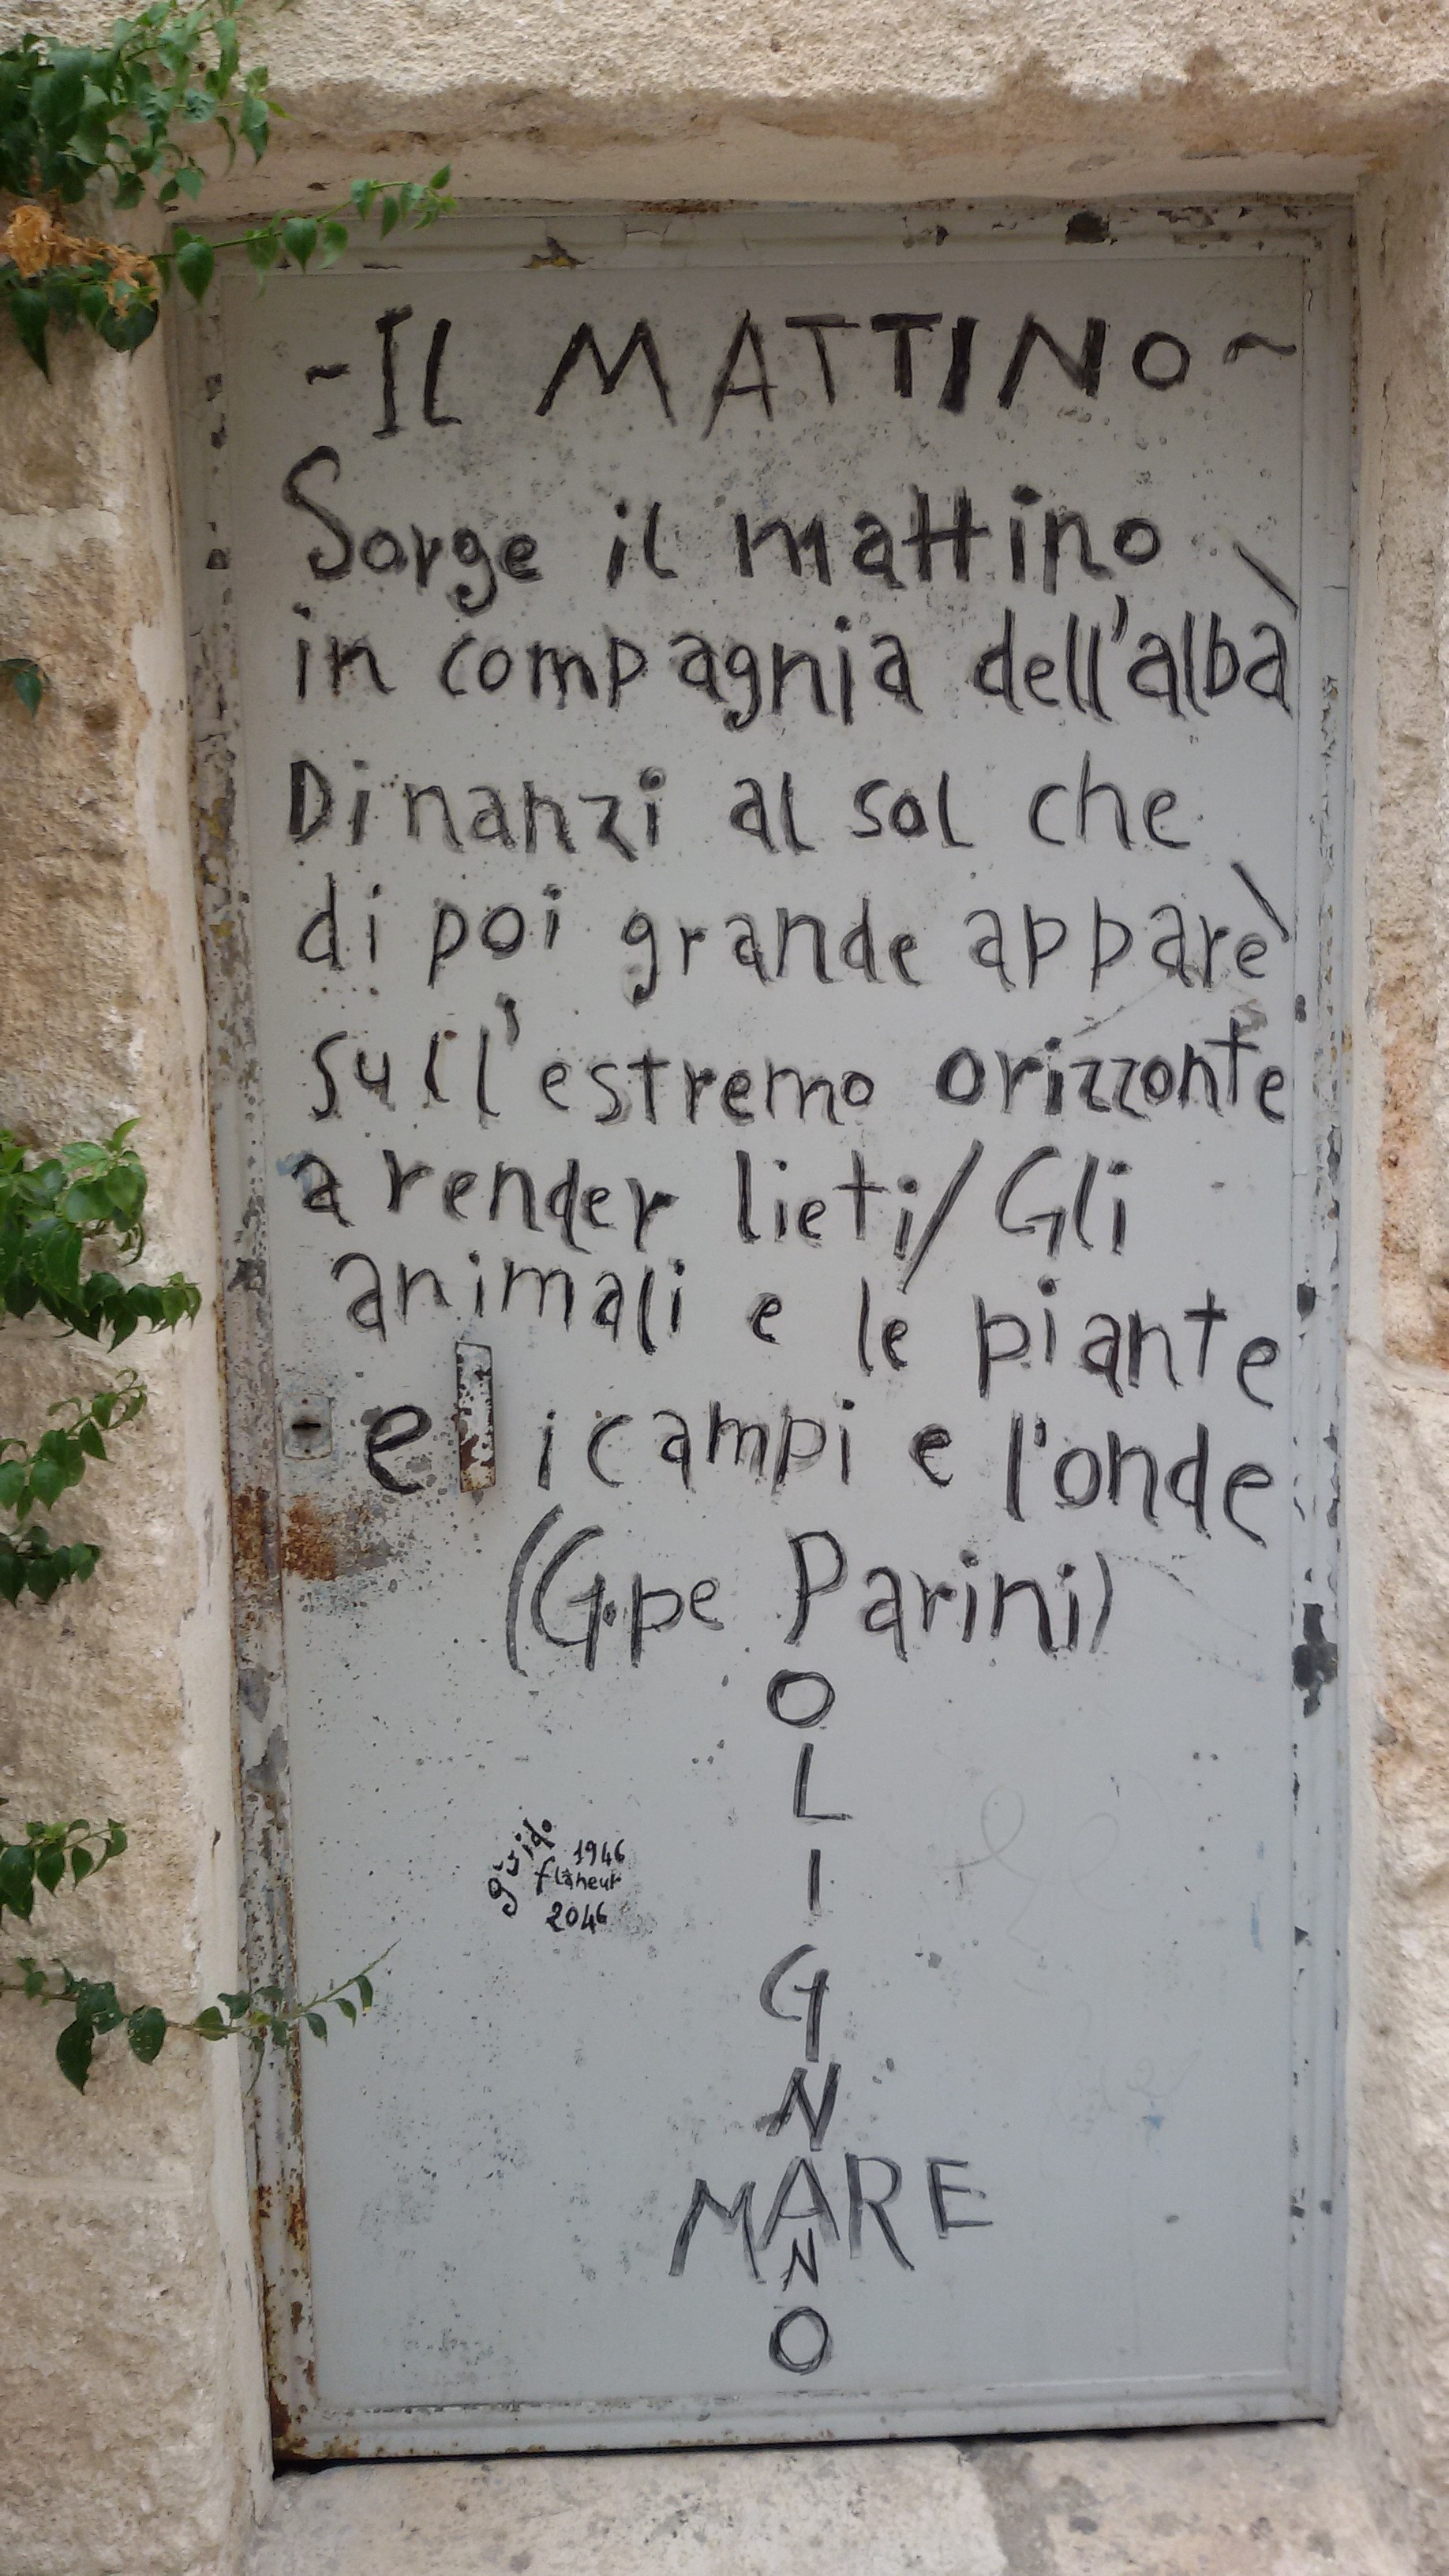 ~IL MATTINO~
Sorge il mattino \
in compagnia dell'alba
Dinanzi al sol che \
di poi grande appare
sull'estremo orizzonte
a render lieti/Gli
animali e le piante
e i campi e l'onde
(G.pe Parini)
POLIGNANO
MARE
guido
1946
flâneur
2046